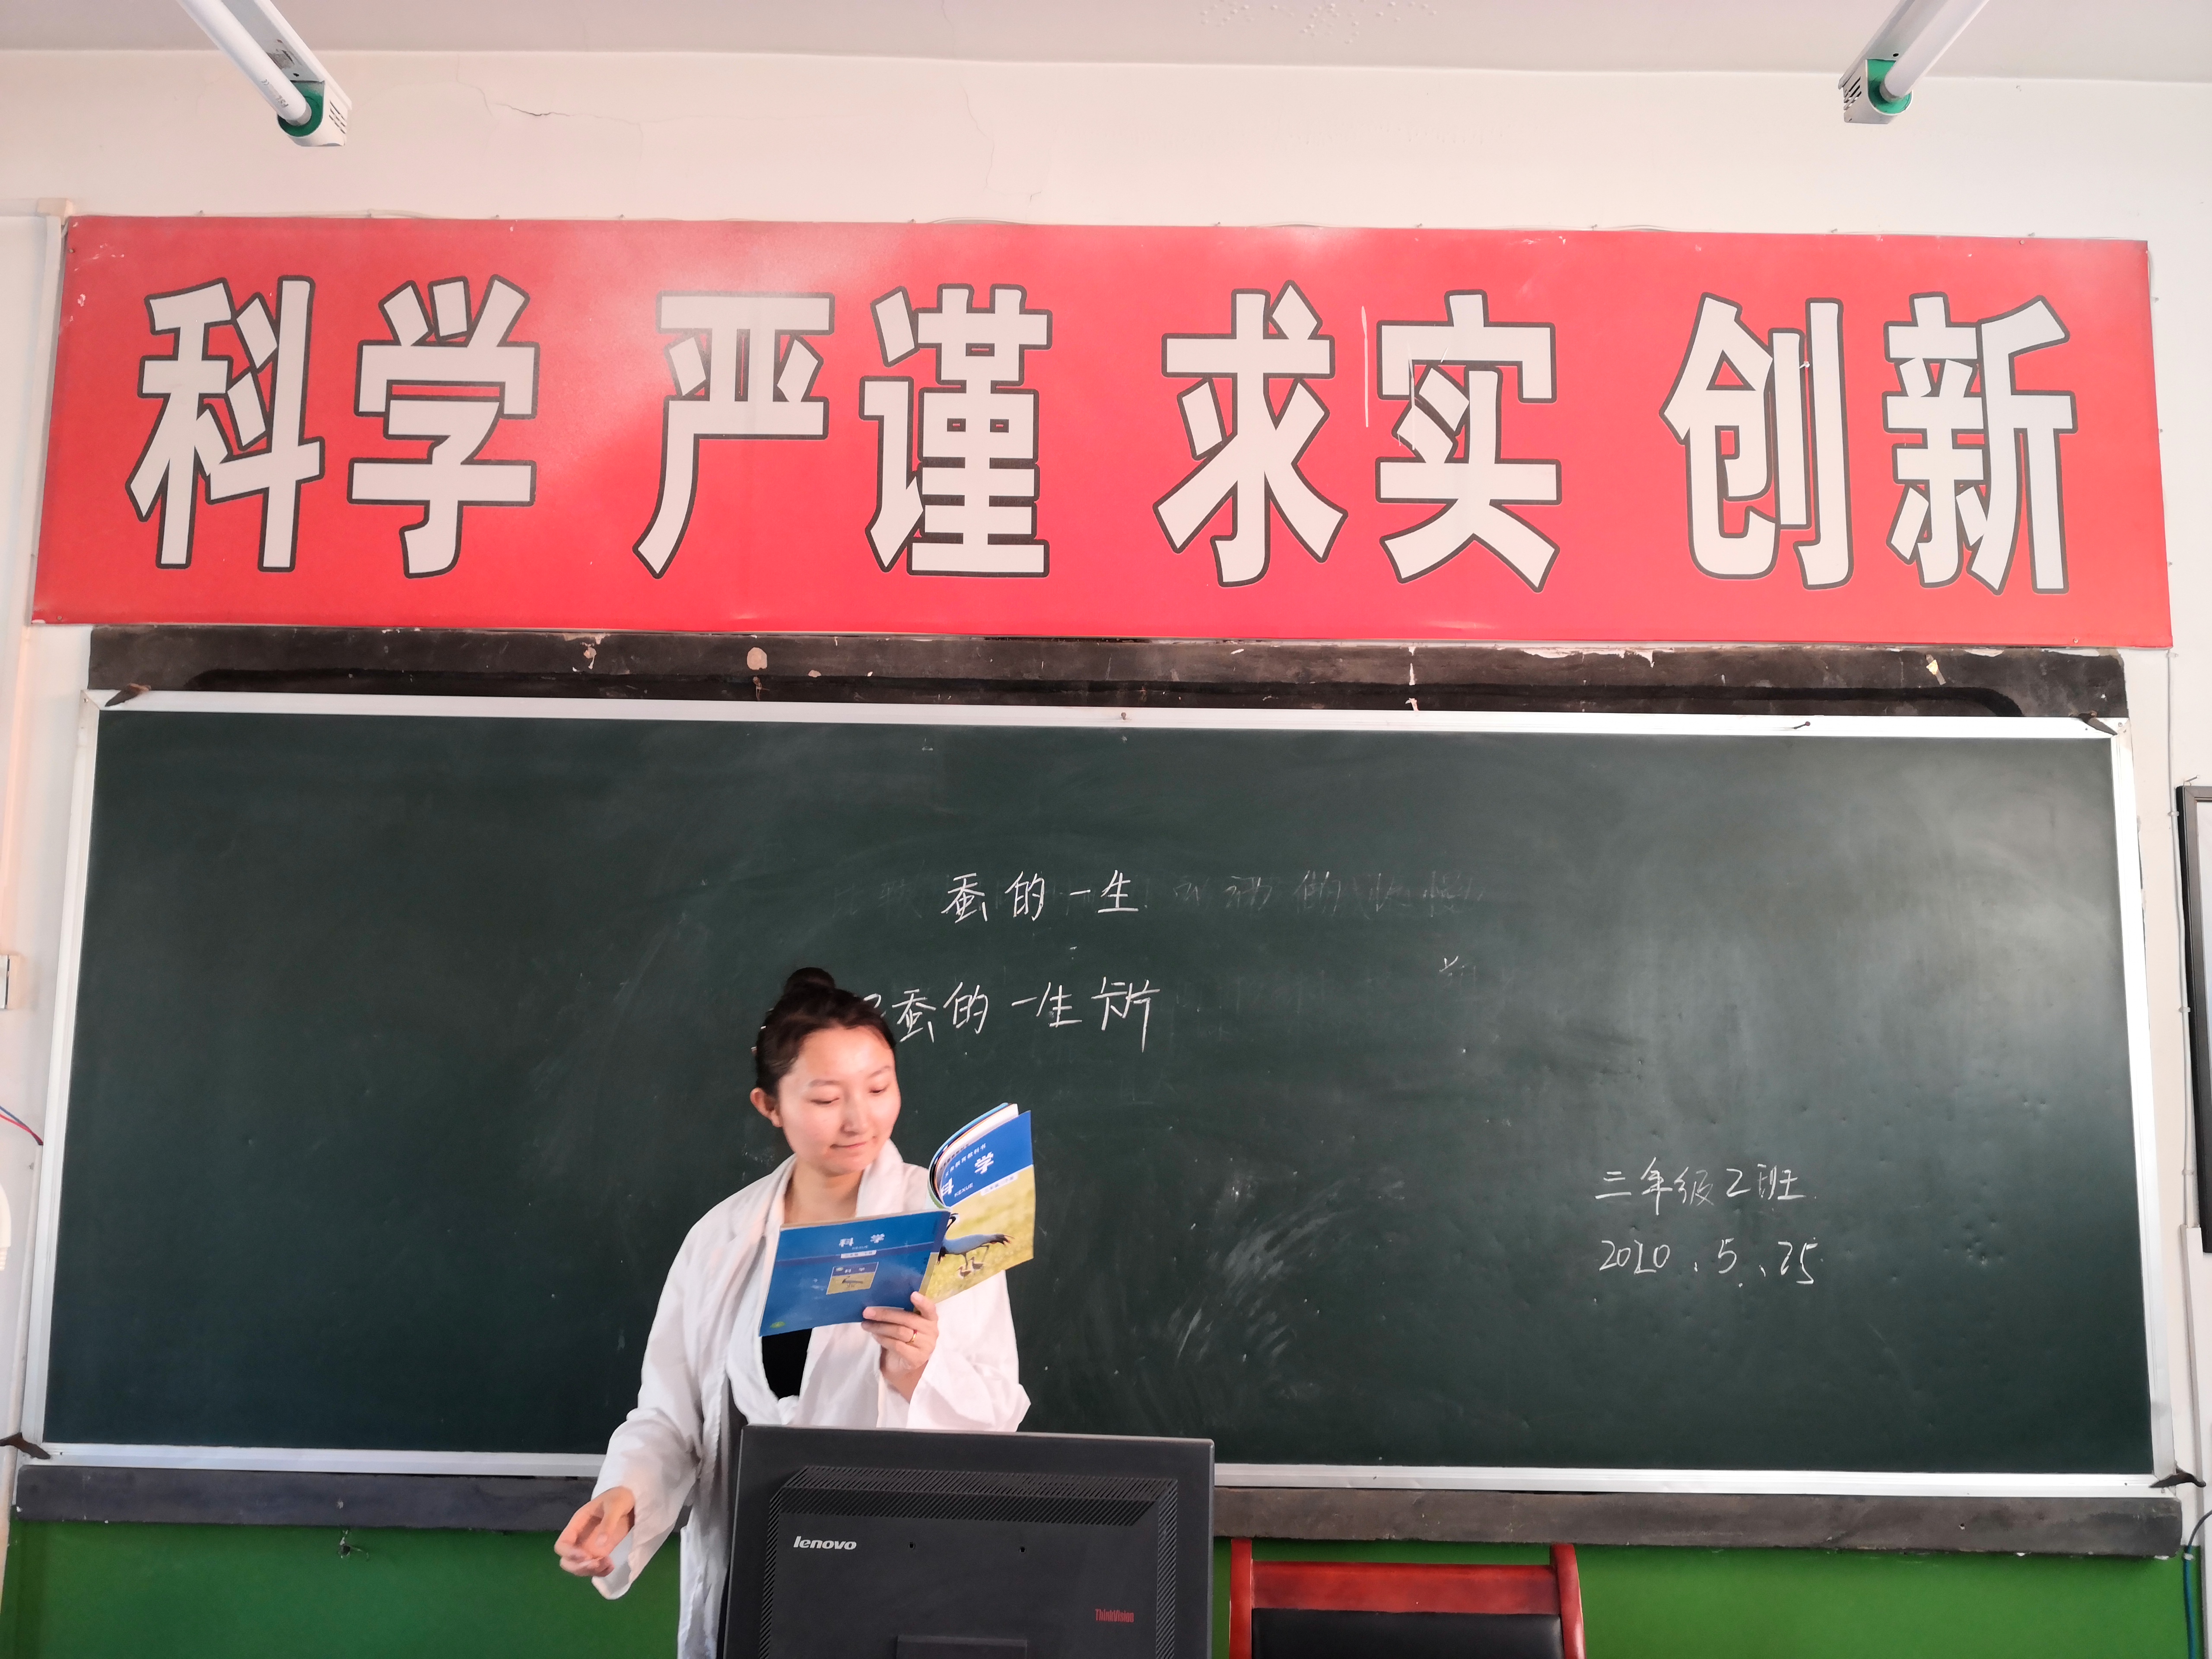 科学 严谨 求实 创新
蚕的一生
蚕的一生卡片
科学
科学
三年级2班
2020.5.25
lenovo
ThinkVision